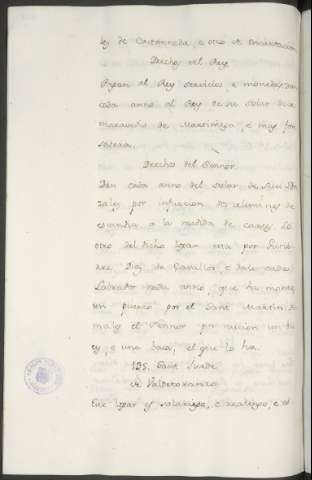 de Castañeda, e otro de Encartacion
Derechos del Rey
Pagan al Rey servicios, e monedas, Dan
cada anno al Rey de su solar doce
maravedis de Martiniega, e mas fon
sadera.
Derechos del Sennor
Dan cada anno del solar de Rui Gon
zalez por infurcion dos celemines de
escandia a la medida de
otro del dicho logar era por
Diaz de e dale cada
Labrador cada anno, que ha manta
un puerco por el Sant Martin,
mais el Sennor por nucion un bu
ey, o una baca, el que lo ha.
125. Sant Juste
de Valdetoranzo
Este logar es solariego, e realengo, e el